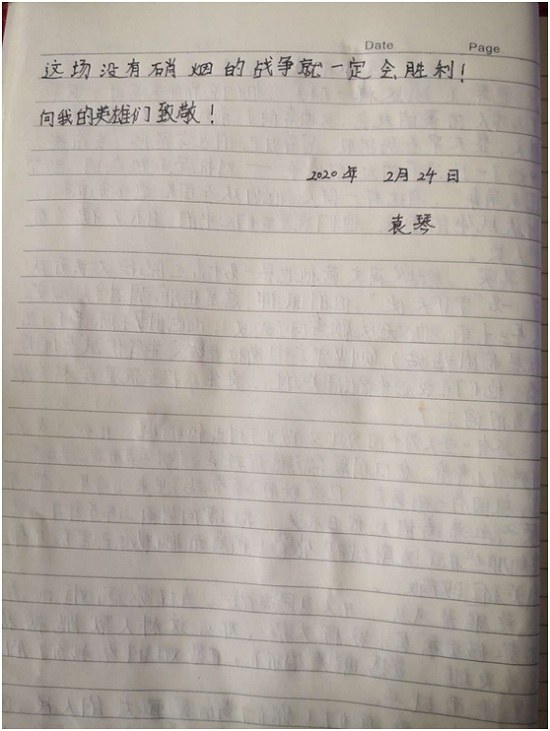 Date Page
这场没有硝烟的战争就一定会胜利!
向我的英雄们致敬!
2020年 2月24日
袁琴